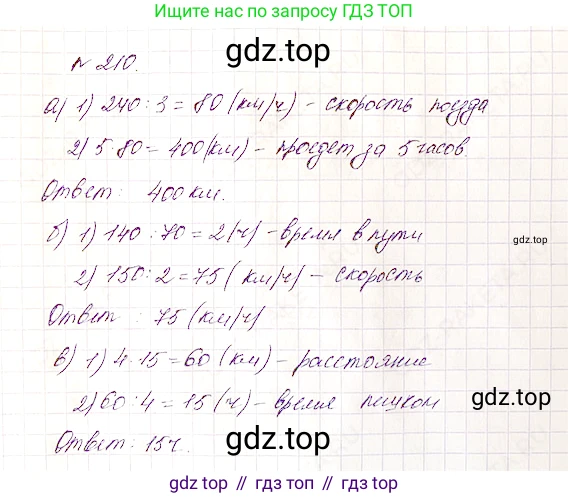 Ищите нас по запросу ГДЗ ТОП
gdz.top
№ 210.
а) 1) 240 : 3 = 80 (км/ч) - скорость поезда
2) 5 · 80 = 400 (км) - проедет за 5 часов.
Ответ: 400 км.
б) 1) 140 : 70 = 2 (ч) - время в пути
gdz.top
2) 150 : 2 = 75 (км/ч) - скорость
Ответ: 75 (км/ч)
в) 1) 4 · 15 = 60 (км) - расстояние
2) 60 : 4 = 15 (ч) - время пешком
gdz.top
Ответ: 15 ч.
gdz.top
gdz.top // гдз топ // gdz top